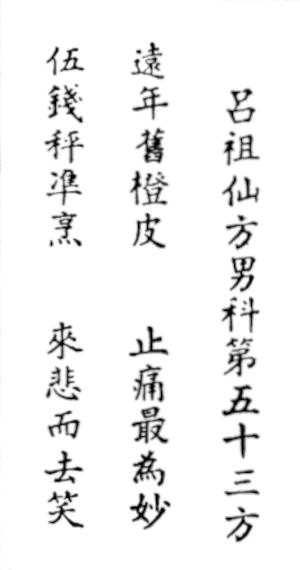 呂祖仙方男科第五十三方
遠年舊橙皮　止痛最為妙
伍錢秤準烹　來悲而去笑